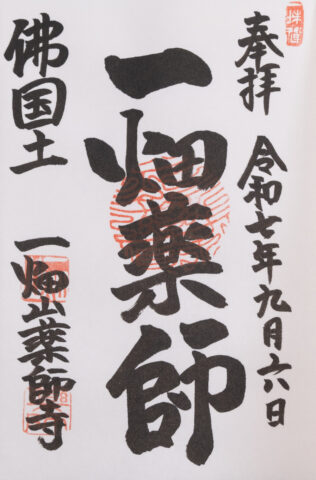 奉拝
令和七年九月六日
一畑薬師
佛国土
一畑山薬師寺